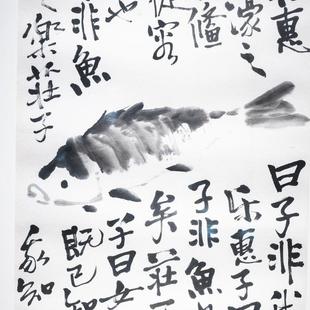 惠
濠之
鯈
從容
也
非魚
之樂莊子
曰子非
乐惠子
子非魚
矣莊
子曰女
既已知
我知